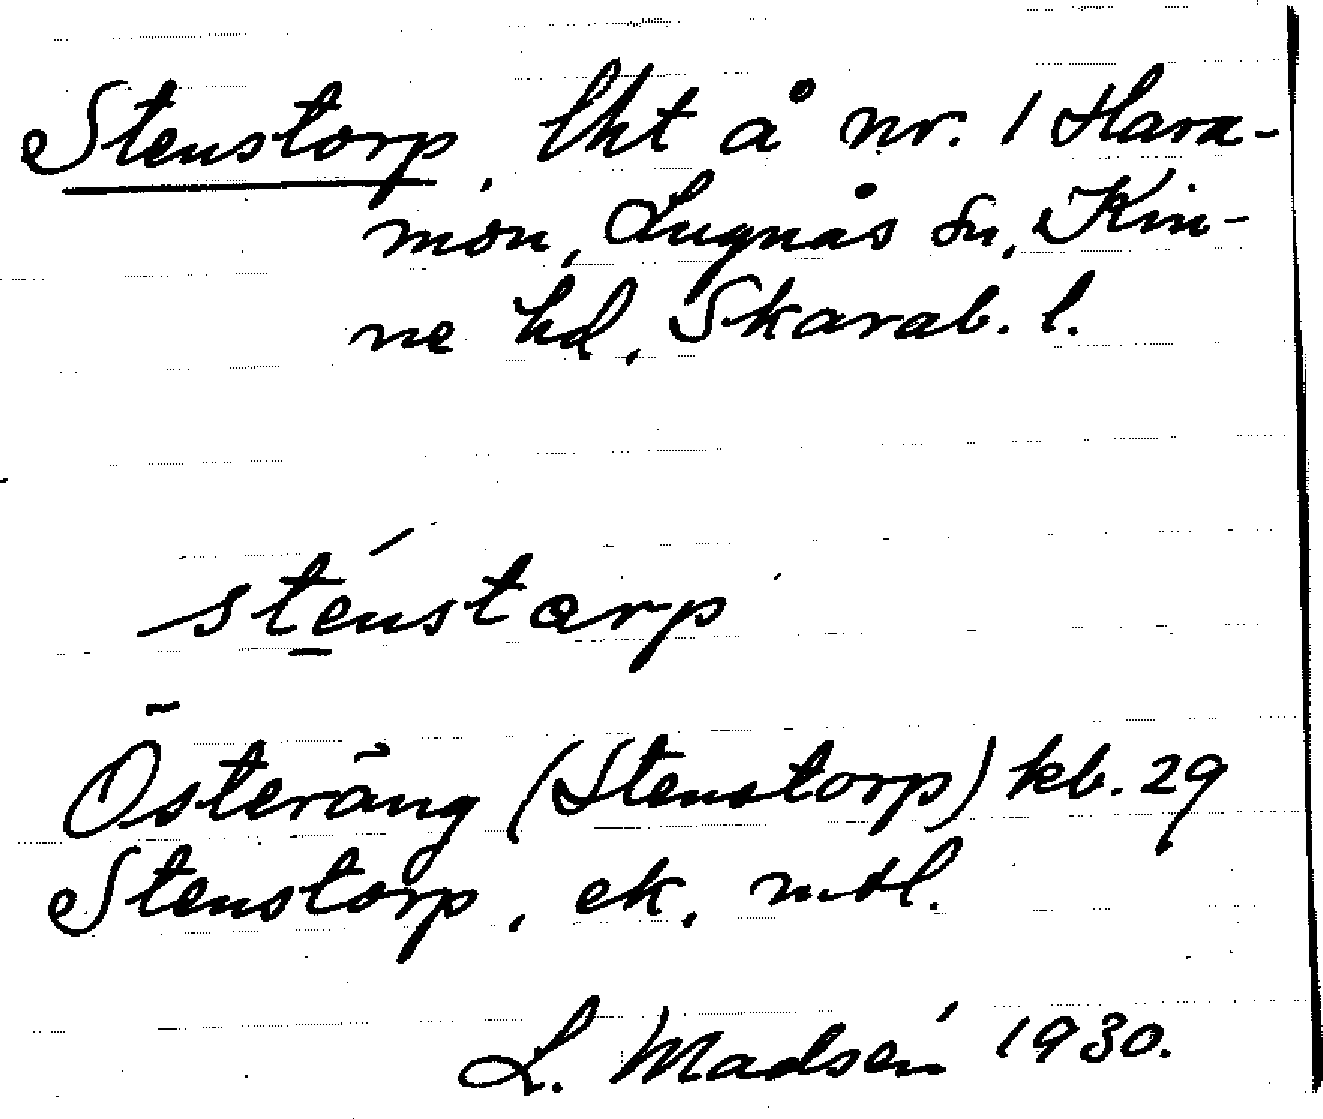 Stenstorp, lht å nr. 1 Hara-
mon, Lugnås sn, Kin-
ne hd, Skarab. l.
sténstərp
Österäng (Stenstorp) kb. 29
Stenstorp, ek, mtl.
L. Madsén 1930.